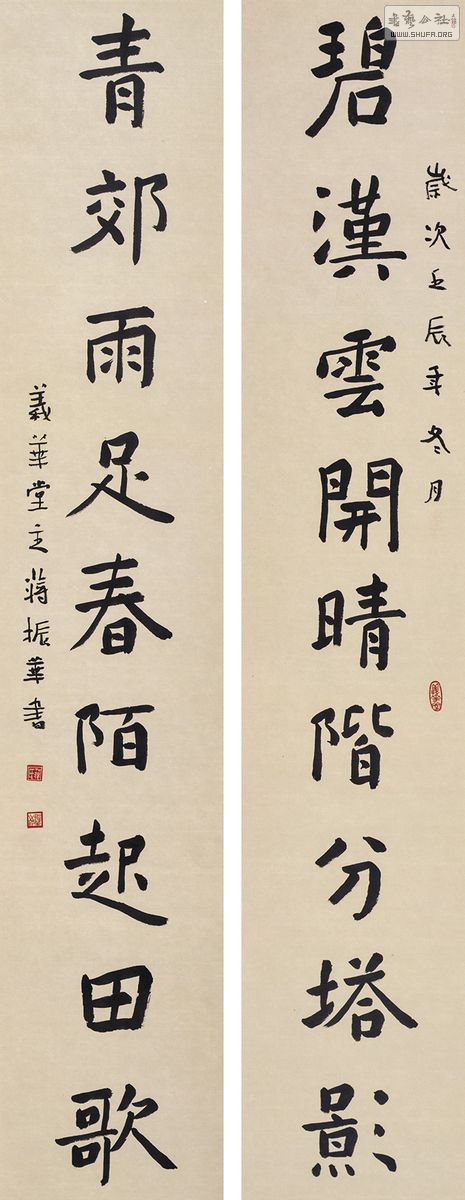 碧漢雲開晴階分塔影
歲次壬辰年冬月
青郊雨足春陌起田歌
義華堂主蔣振華書
書藝公社
WWW.SHUFA.ORG